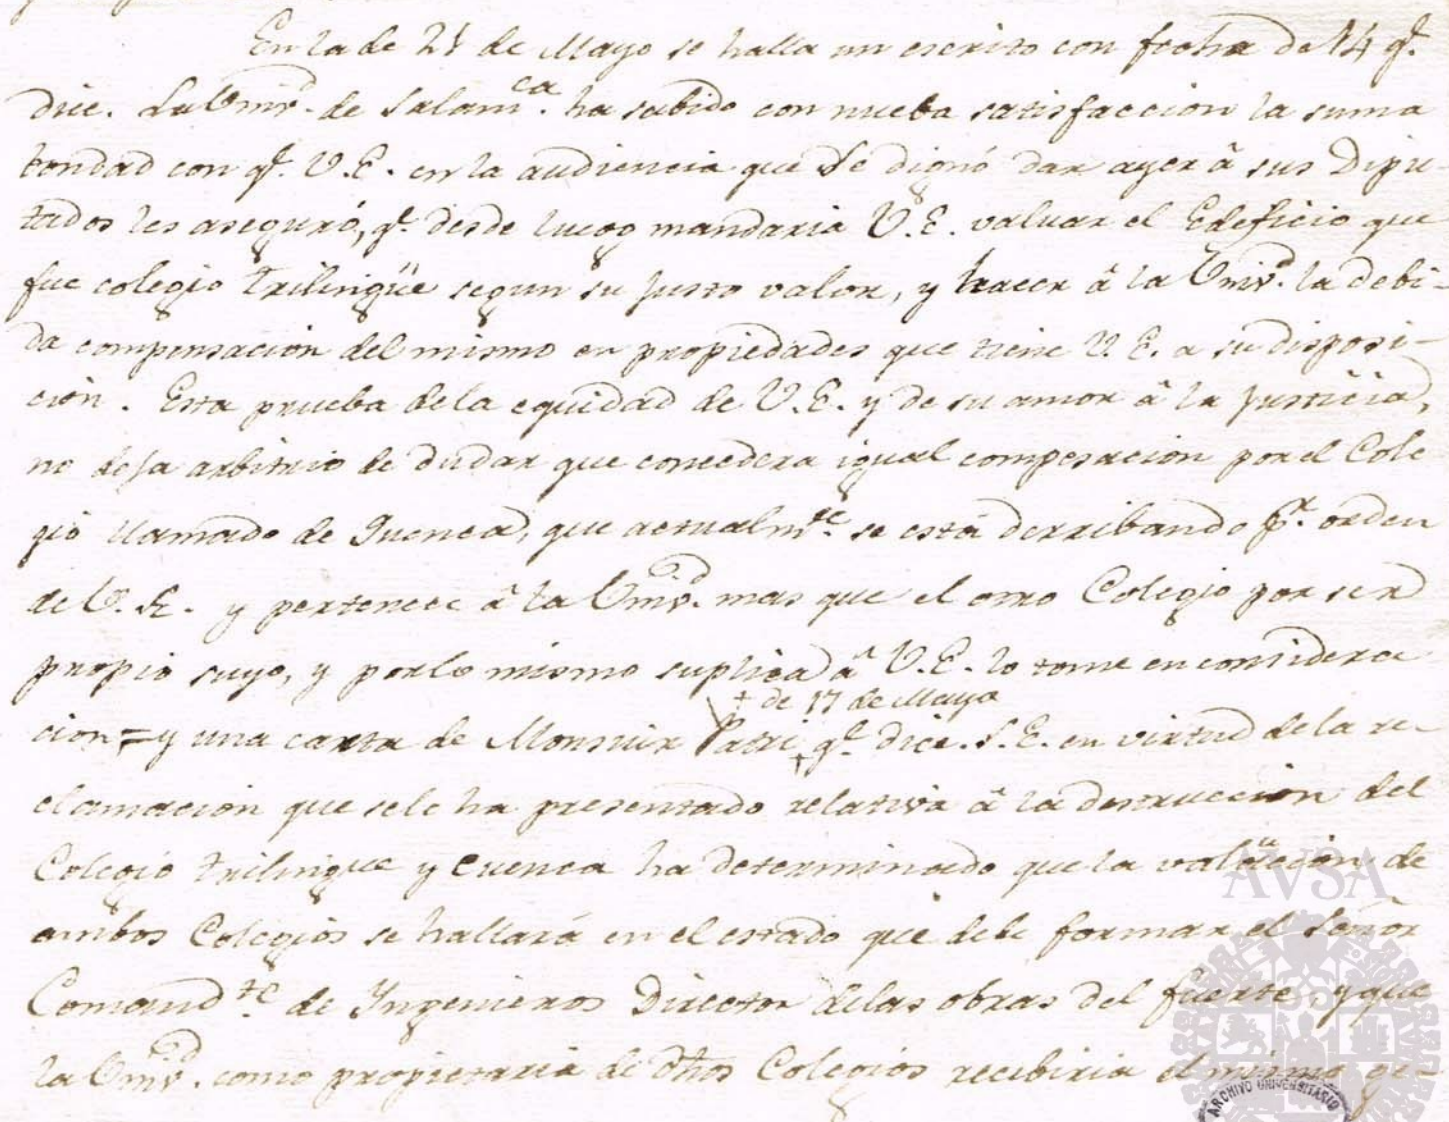 En la de 21 de Mayo se halla un escrito con fecha de 14 q.e
dice. La Univ.d de Salam.ca ha sabido con nueba satisfaccion la suma
bondad con q.e V.E. en la audiencia que se dignó dar ayer â sus Dipu-
tados les aseguró, q.e desde luego mandaria V.E. valuar el Edeficio que
fue colegio trilingüe segun su justo valor, y hacer â la Univ.d la debi-
da compensacion del mismo en propiedades que tiene V.E. a su disposi-
cion. Esta prueba de la equidad de V.E. y de su amor â la Justicia,
no deja arbitrio de dudar que concedera igual compesacion por el Cole
gio llamado de Cuenca, que actualm.te se está derribando p.r orden
de V.E. y pertenece â la Univ.d mas que el otro Colegio por ser
propio suyo, y por lo mismo suplica â V.E. lo tome en considera
+ de 17 de Mayo
cion = y una carta de Monsuir Patri + q.e dice. S.E. en virtud de la re-
clamacion que se le ha presentado relativa â la destruccion del
Colegio trilingue y Cuenca ha determinado que la valuacion de
ambos Colegios se hallará en el estado que debe formar el Señor
Comand.te de Ingenieros Director de las obras del fuerte, y que
la Univ.d como propietaria de dhos Colegios recibiria el mismo
AVSA
ARCHIVO UNIVERSITARIO